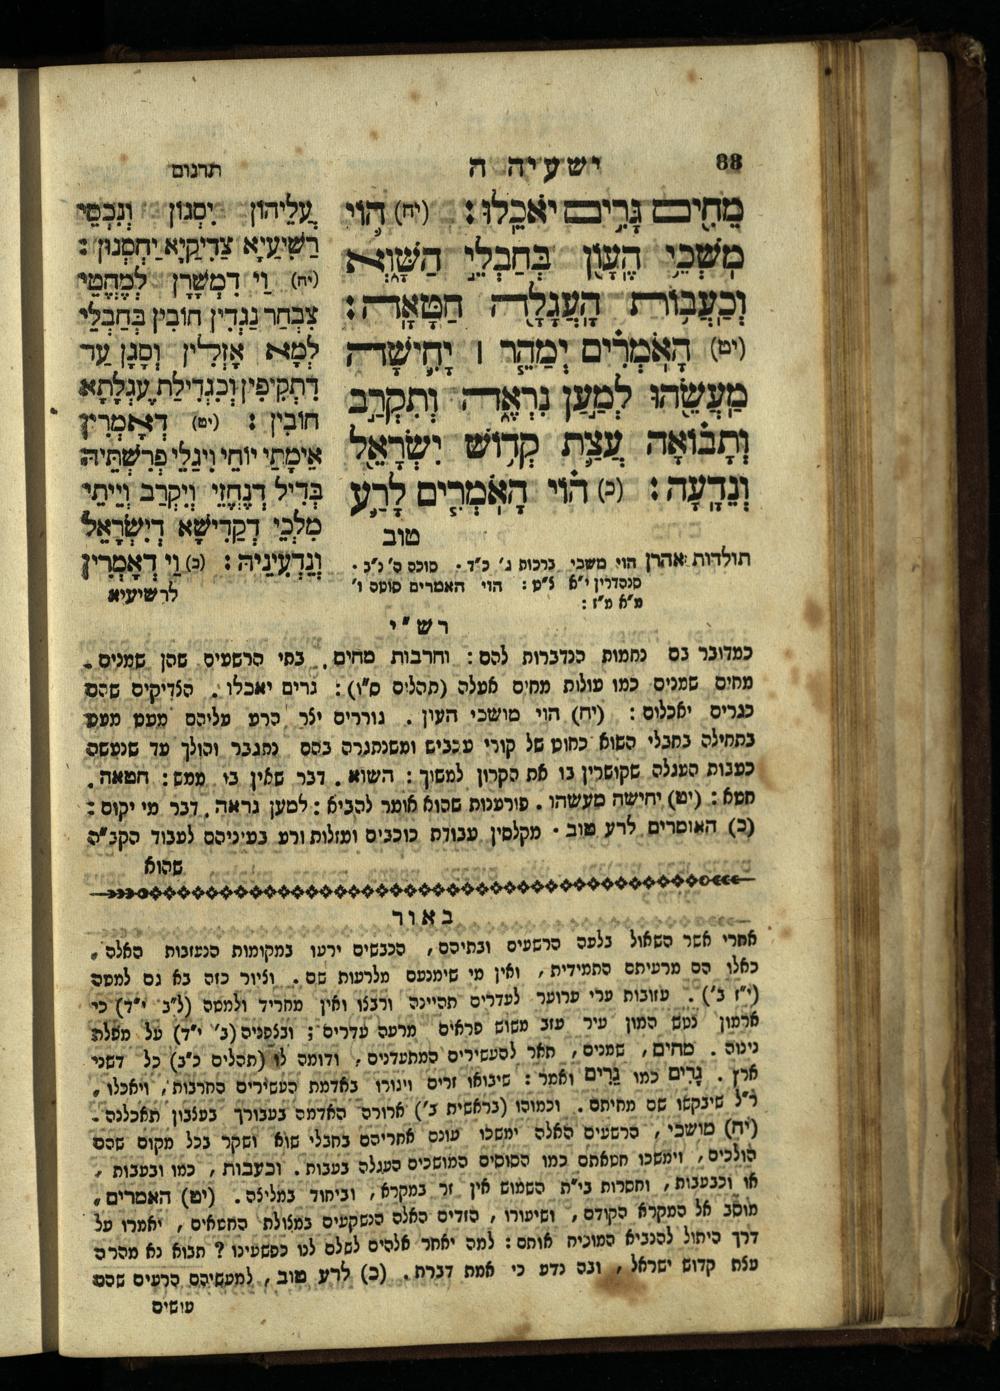 88
ישעיה ה
תרגום
מֵחִים גָּרִים יֹאכֵלוּ׃ (יח) הוֹי
מֹשְׁכֵי הֶעָוֺן בְּחַבְלֵי הַשָּׁוְא
וְכַעֲבוֹת הָעֲגָלָה חַטָּאָה׃
(יט) הָאֹמְרִים יְמַהֵר ׀ יָחִישָׁה
מַעֲשֵׂהוּ לְמַעַן נִרְאֶה וְתִקְרַב
וְתָבוֹאָה עֲצַת קְדוֹשׁ יִשְׂרָאֵל
וְנֵדָעָה׃ (כ) הוֹי הָאֹמְרִים לָרַע
טוב
עֲלֵיהוֹן יִסְגוֹן וְנִכְסֵי
רַשִׁיעַיָא צַדִיקַיָא יַחְסְנוּן׃
(יח) וַי דִמְשָׁרָן לְמֶחֱטֵי
צִבְחַר נַגְדִין חוֹבִין בְּחַבְלֵי
לְמָא אָזְלִין וְסָגָן עַד
דִתְקִיפִין וְכִגְדִילַת עֶגְלָתָא
חוֹבִין׃ (יט) דְאָמְרִין
אֵימָתַי יוֹחֵי וְיִגַלֵי פְּרִשָׁתֵּיהּ
בְּדִיל דְנֶחֱזֵי וְיִקְרַב וְיֵיתֵי
מִלְכֵי דְקַדִישָׁא דְיִשְׂרָאֵל
וְנִדְעִינֵיהּ׃ (כ) וַי דְאָמְרִין
לרשיעיא
תולדות אהרן הוי משכי ברכות ג' כ"ד. סוכה ה' נ"ב.
סנהדרין י"א צ"ט: הוי האמרים סוטה ו'
מ"א מ"ז:
רש"י
כמדובר בם נחמות הנדברות להם: וחרבות מחים. בתי הרשעים שהן שמנים.
מחים שמנים כמו עולות מחים אעלה (תהלים ס"ו): גרים יאכלו. הצדיקים שהם
כגרים יאכלום: (יח) הוי מושכי העון. גוררים יצר הרע עליהם מעט מעט
בתחילה בחבלי השוא כחוט של קורי עכביש ומשנתגרה בהם נתגבר והולך עד שנעשה
כעבות העגלה שקושרין בו את הקרון למשוך: השוא. דבר שאין בו ממש: חטאה.
חטא: (יט) יחישה מעשהו. פורענות שהוא אומר להביא: למען נראה. דבר מי יקום:
(כ) האומרים לרע טוב. מקלסין עבודת כוכבים ומזלות ורע בעיניהם לעבוד הקב"ה
שהוא
באור
אחרי אשר השאול בלעה הרשעים ובתיהם, הכבשים ירעו במקומות הנעזבות האלה,
כאלו הם מרעיתם התמידית, ואין מי שימנעם מלרעות שם. וציור כזה בא גם למטה
(י"ז ב'). עזובות ערי ערוער לעדרים תהיינה ורבצו ואין מחריד ולמטה (ל"ב י"ד) כי
ארמון נטש המון עיר עזב משוש פראים מרעה עדרים; ובצפניה (ב' י"ד) על מפלת
נינוה. מחים, שמנים, תאר להעשירים המתעדנים, ודומה לו (תהלים כ"ב) כל דשני
ארץ. גָרִים כמו גֵרִים ואמר: שיבואו זרים ויגורו באדמת העשירים החרבות, ויאכלו,
ר"ל שיבקשו שם מחיתם. וכמוהו (בראשית ג') ארורה האדמה בעבורך בעצבון תאכלנה.
(יח) מושכי, הרשעים האלה ימשכו עונם אחריהם בחבלי שוא ושקר בכל מקום שהם
הולכים, וימשכו חטאתם כמו הסוסים המושכים העגלה בעבות. וכעבות, כמו ובעבות,
או וכבעבות, וחסרות בי"ת השמוש אין זר במקרא, וביחוד במליצה. (יט) האמרים,
מוסב אל המקרא הקודם, ושיעורו, הזדים האלה הנשקעים במצולת החטאים, יאמרו על
דרך היתול להנביא המוכיח אותם: למה יאחר אלהים לשלם לנו כפשעינו? תבוא נא מהרה
עצת קדוש ישראל, ובה נדע כי אמת דברת. (כ) לרע טוב, למעשיהם הרעים שהם
עושים